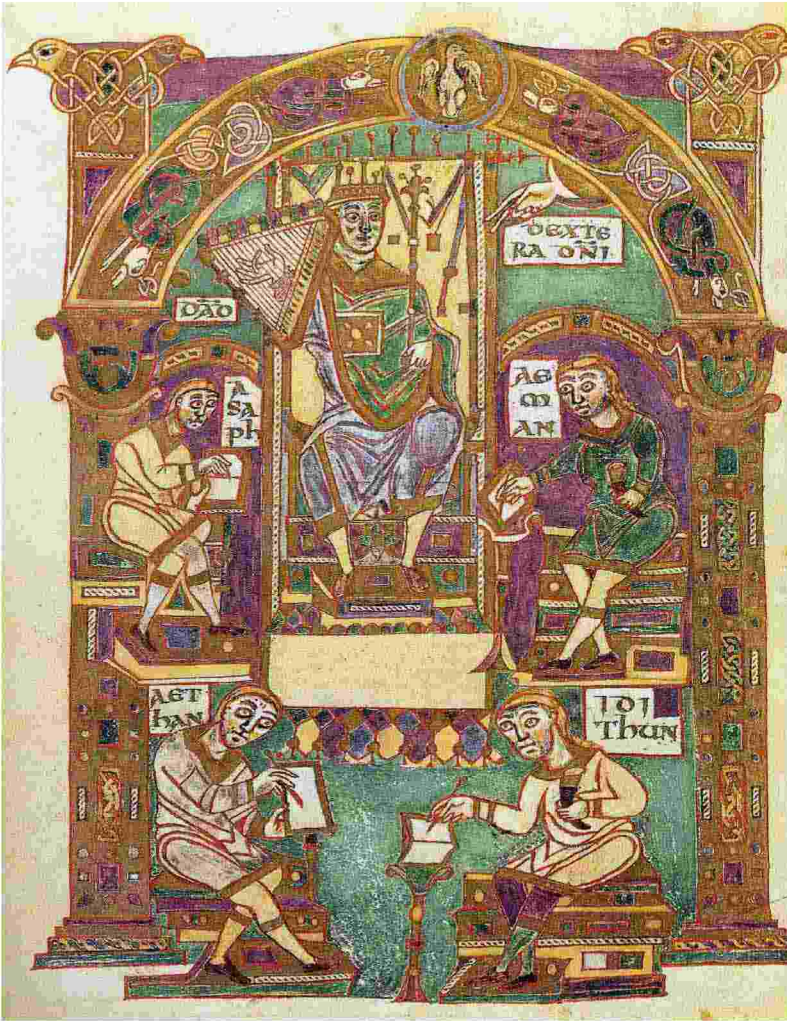 DEXTE
RA DN̄I
DAD̄
A
SA
ph
AE
M
AN
AET
hAN
IDI
ThUN